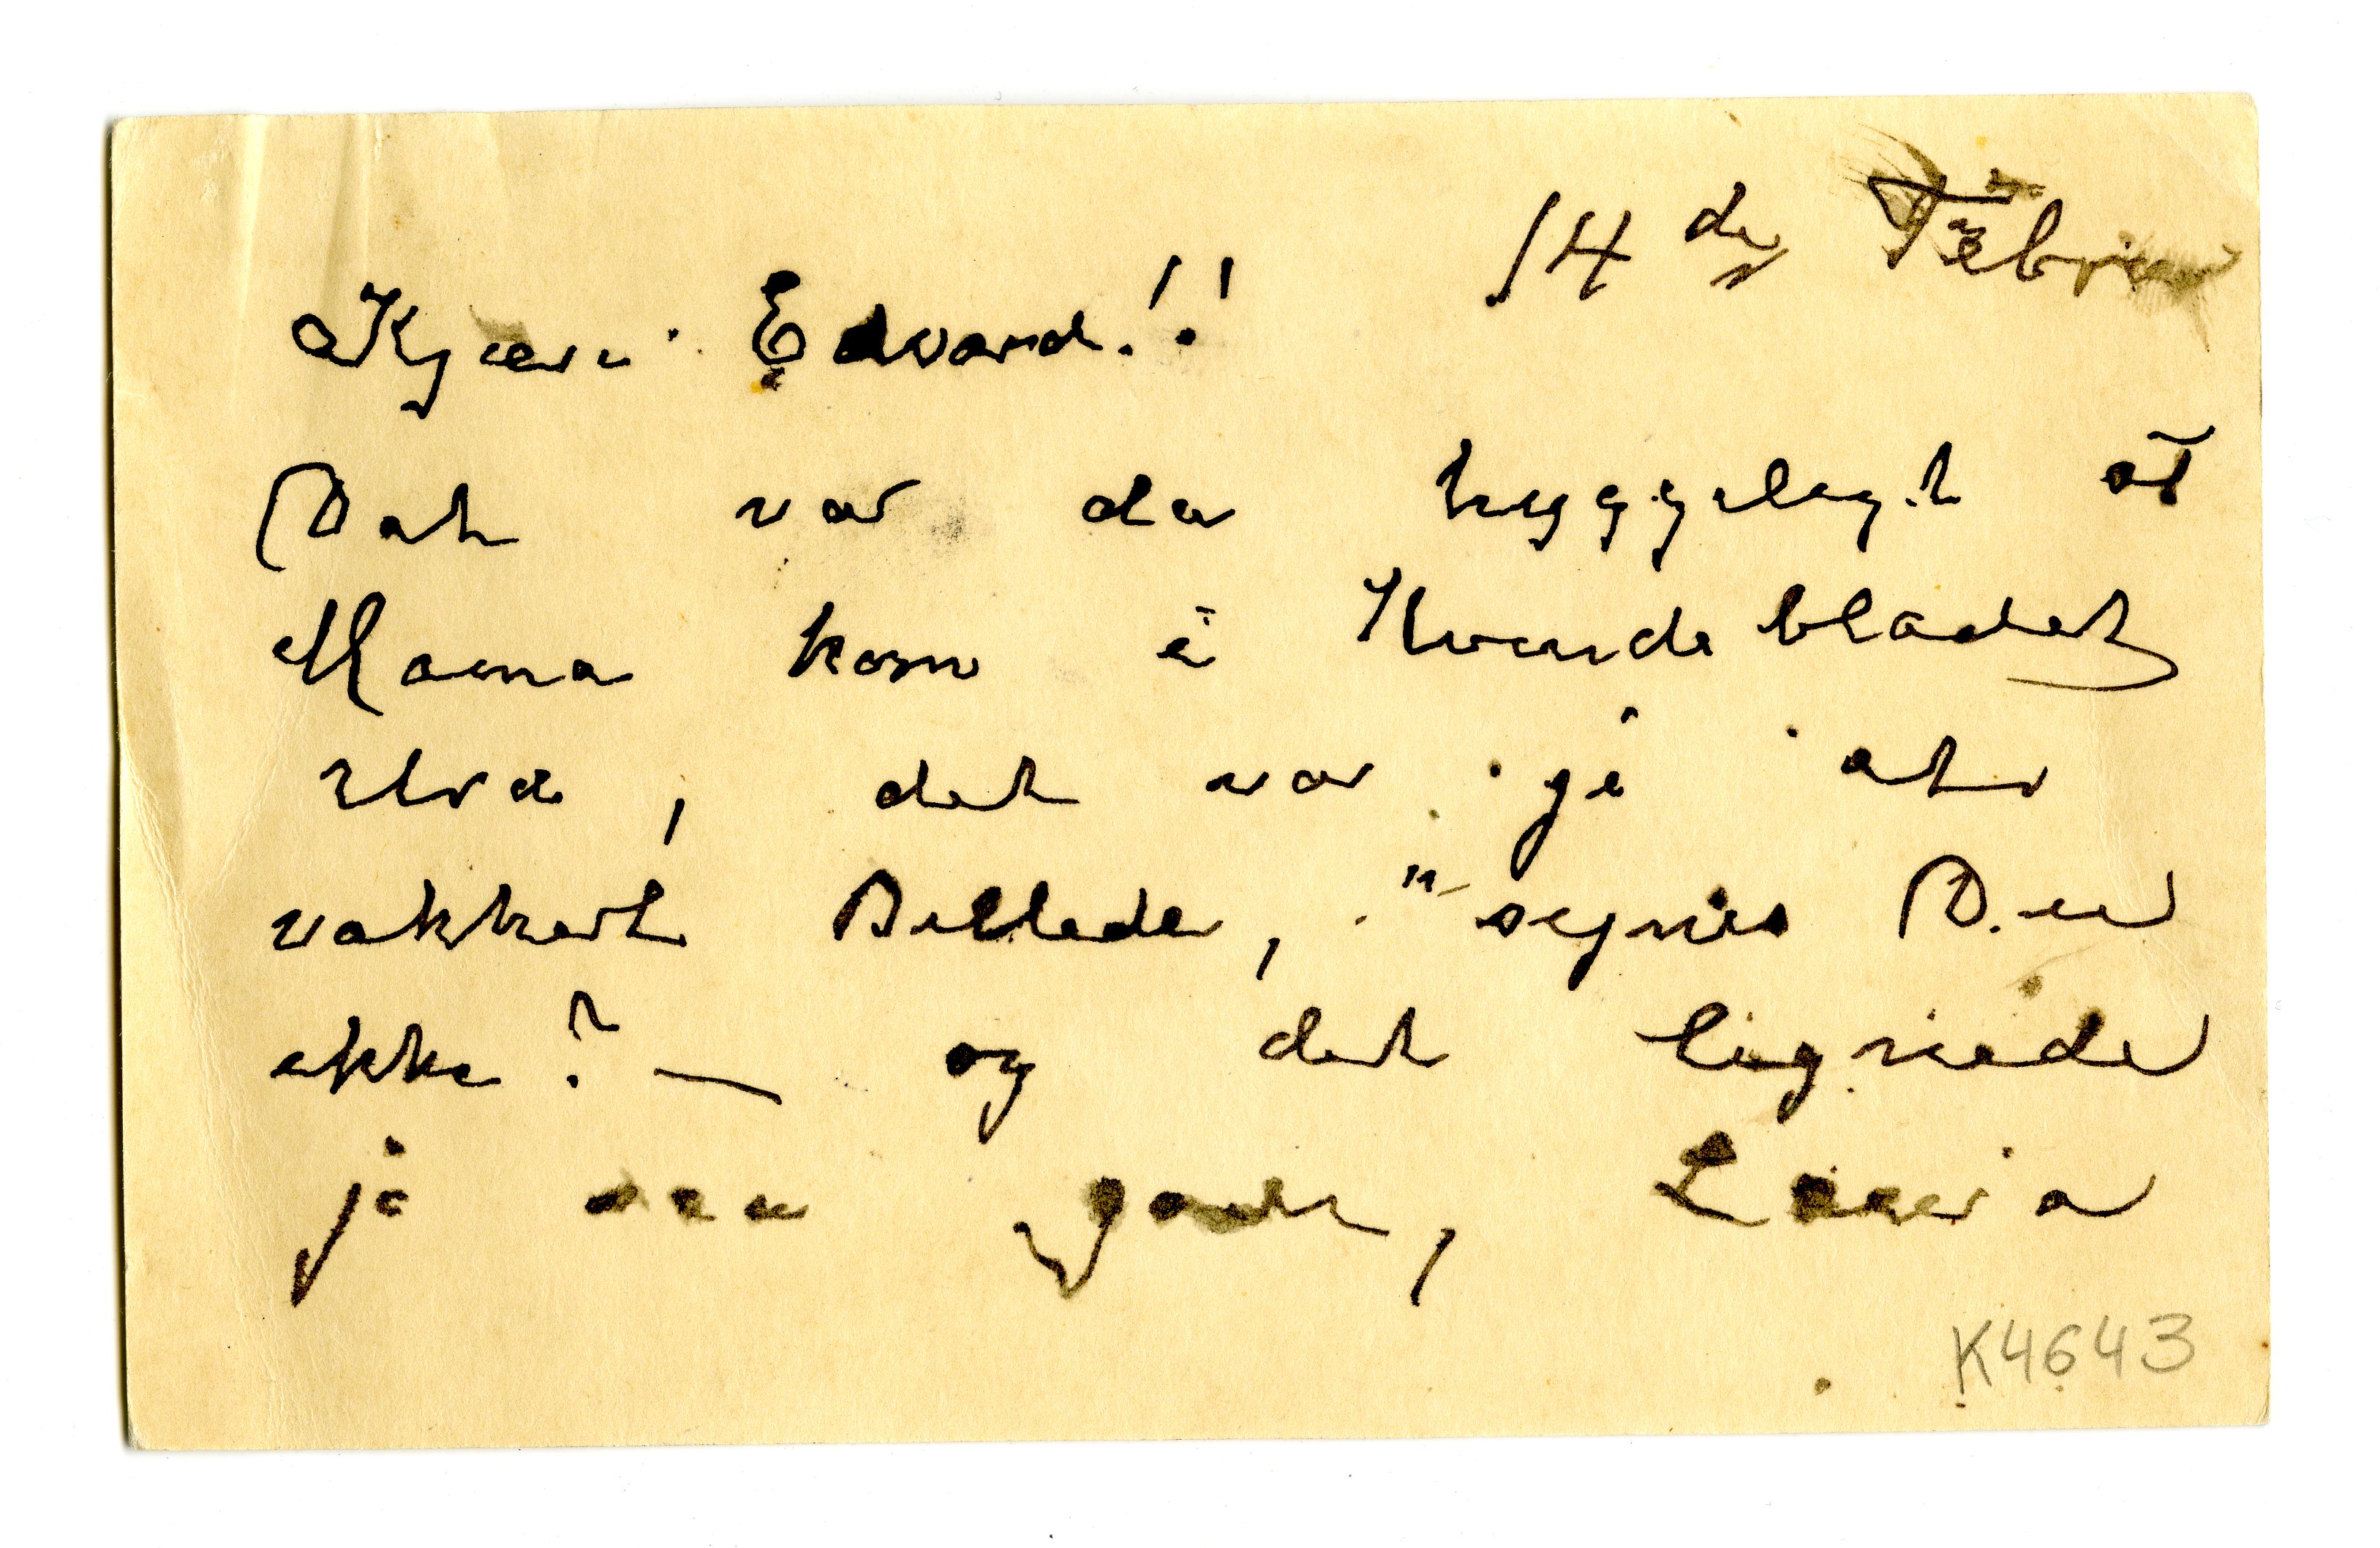 14de Februar
Kjære Edvard!!
Det var da hyggeligt at
Mama kom i Kvindebladet
, det var jo et
vakkert Billede, synes Du
ikke? — og det lignede
jo saa godt, Laura
K4643